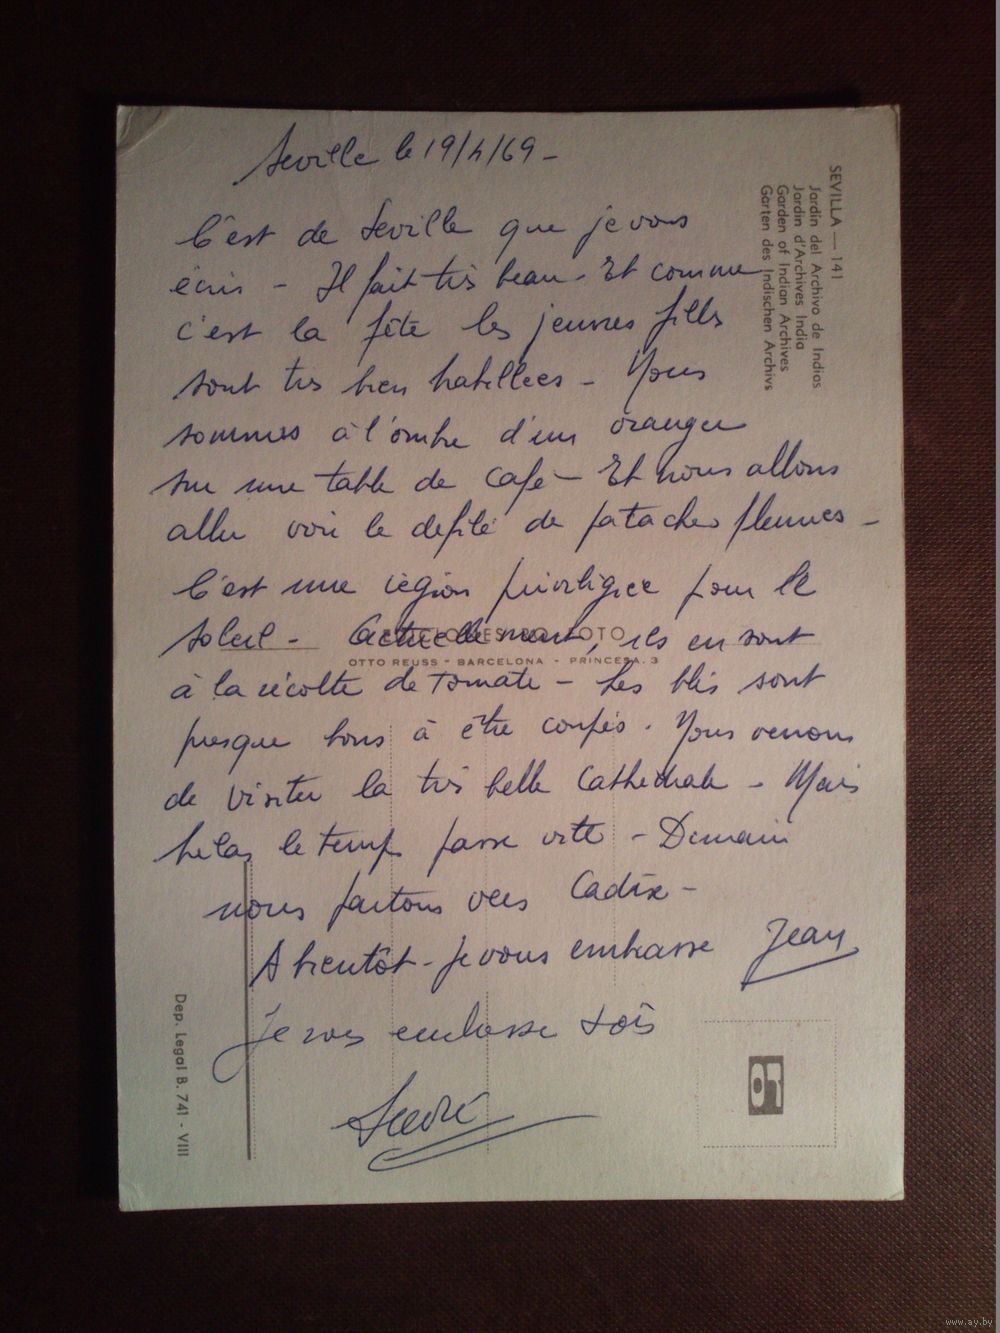 Seville le 19/4/69 -
C'est de Seville que je vous
écris - Il fait très beau - Et comme
c'est la fête les jeunes filles
sont très bien habillées - Nous
sommes à l'ombre d'un oranger
sur une table de café - Et nous allons
aller voir le defilé de pataches fleuries -
C'est une région privilégiée pour le
soleil - Actuellement, ils en sont
à la récolte de tomate - Les blés sont
presque bons à être coupés. Nous venons
de visiter la très belle Cathédrale - Mais
helas le temps passe vite - Demain
nous partons vers Cadix -
A bientôt - je vous embrasse Jean
Je vous embrasse
SEVILLA — 141
Jardín del Archivo de Indias
Jardin d'Archives India
Garden of Indian Archives
Garten des Indischen Archivs
OTTO REUSS - BARCELONA - PRINCESA, 3
Dep. Legal B. 741 - VIII
www.ay.by